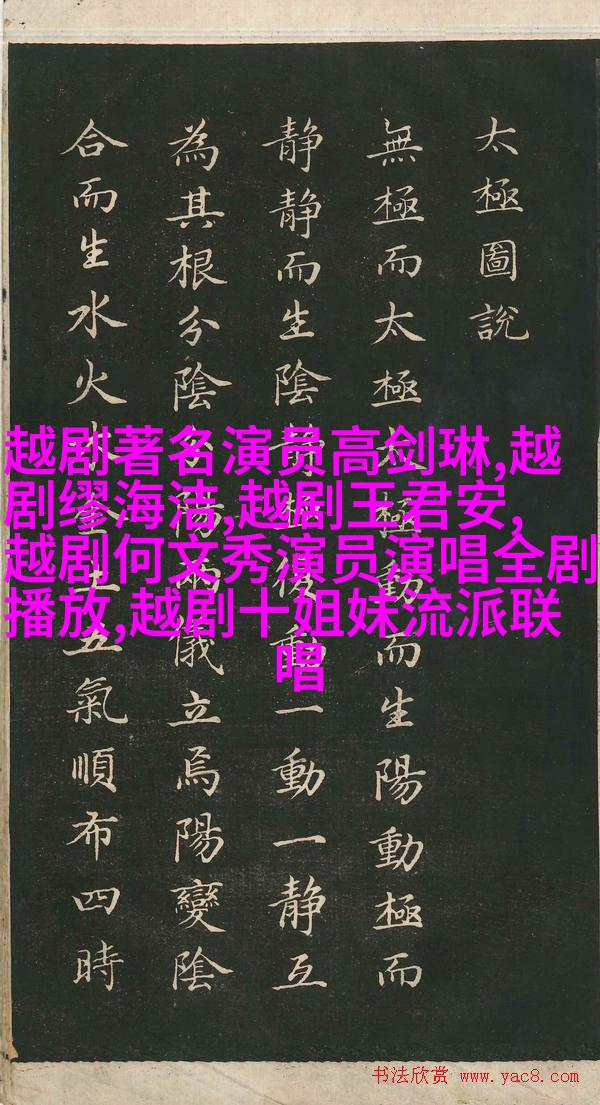 太極圖說
無極而太極太極動而生陽動極而
静静而生陰静極復動一動一静互
為其根分陰分陽兩儀立焉陽變陰
合而生水火木金土五氣順布四時
越剧著名演员高剑琳,越
剧缪海洁,越剧王君安,
越剧何文秀演员演唱全剧
播放,越剧十姐妹流派联
唱
书法欣赏 www.yac8.com